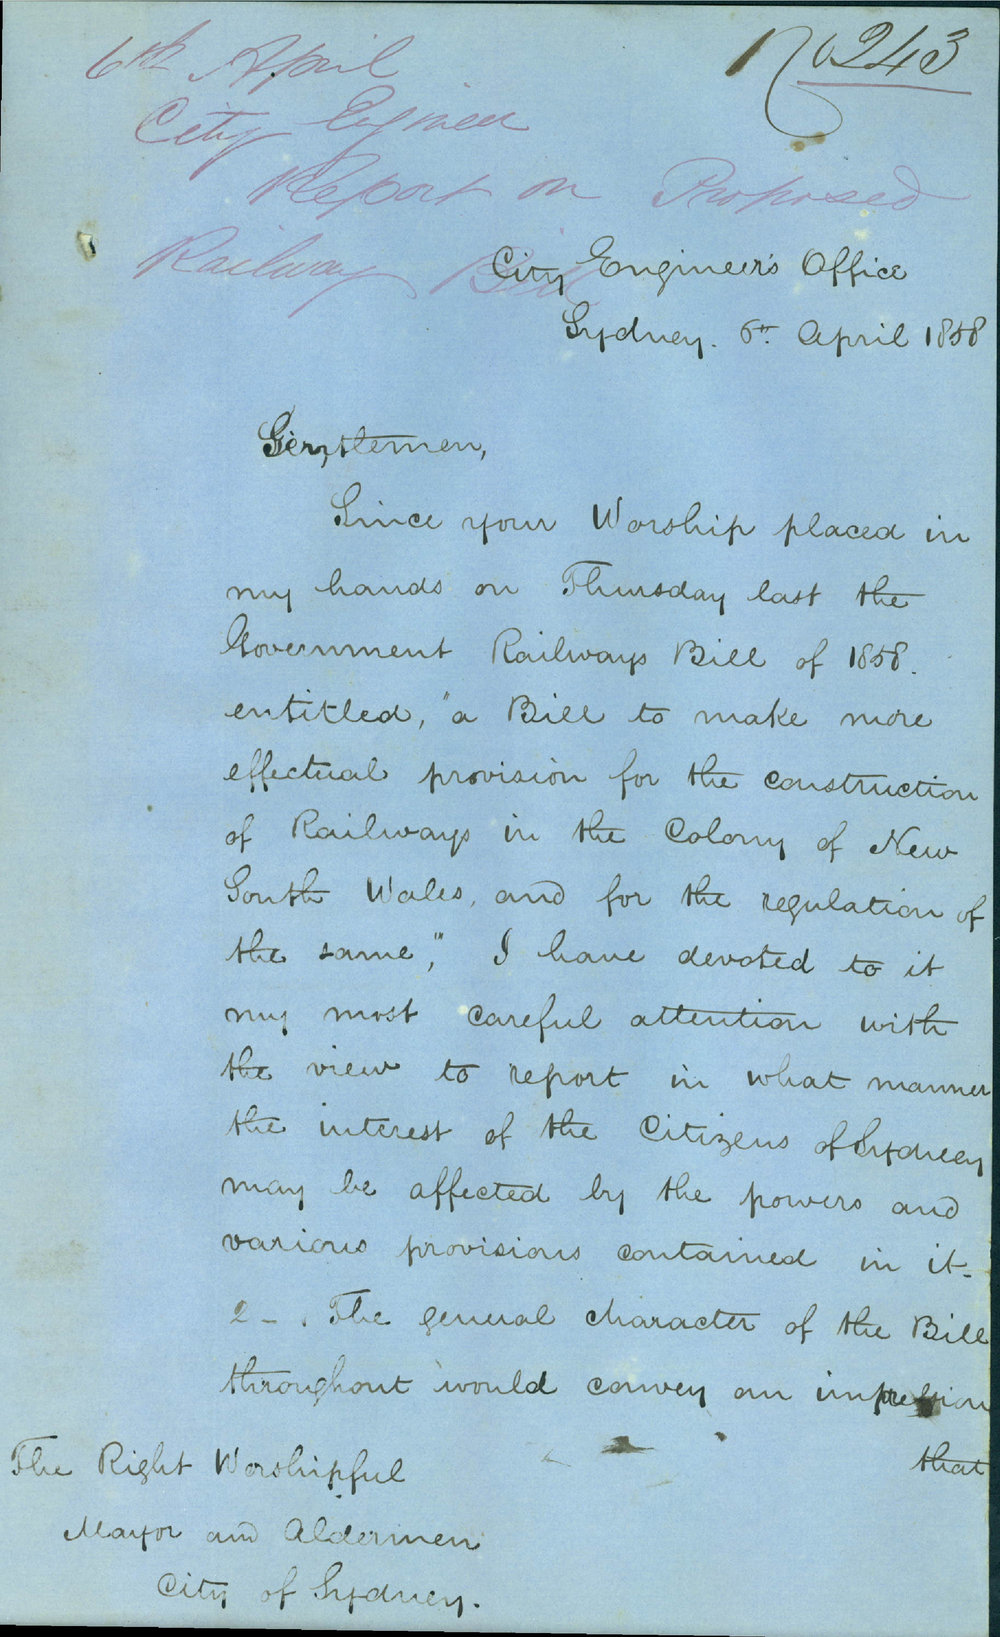 No 243
6th April
City Engineer
Report on Proposed
Railway Bill
City Engineer's Office
Sydney. 6th April 1858
Gentlemen,
Since your Worship placed in
my hands on Thursday last the
Government Railways Bill of 1858.
entitled, "a Bill to make more
effectual provision for the construction
of Railways in the Colony of New
South Wales, and for the regulation of
the same," I have devoted to it
my most careful attention with
the view to report in what manner
the interest of the Citizens of Sydney
may be affected by the powers and
various provisions contained in it-
2 - . The general character of the Bill
throughout would convey an impression
that
The Right Worshipful
Mayor and Aldermen
City of Sydney.